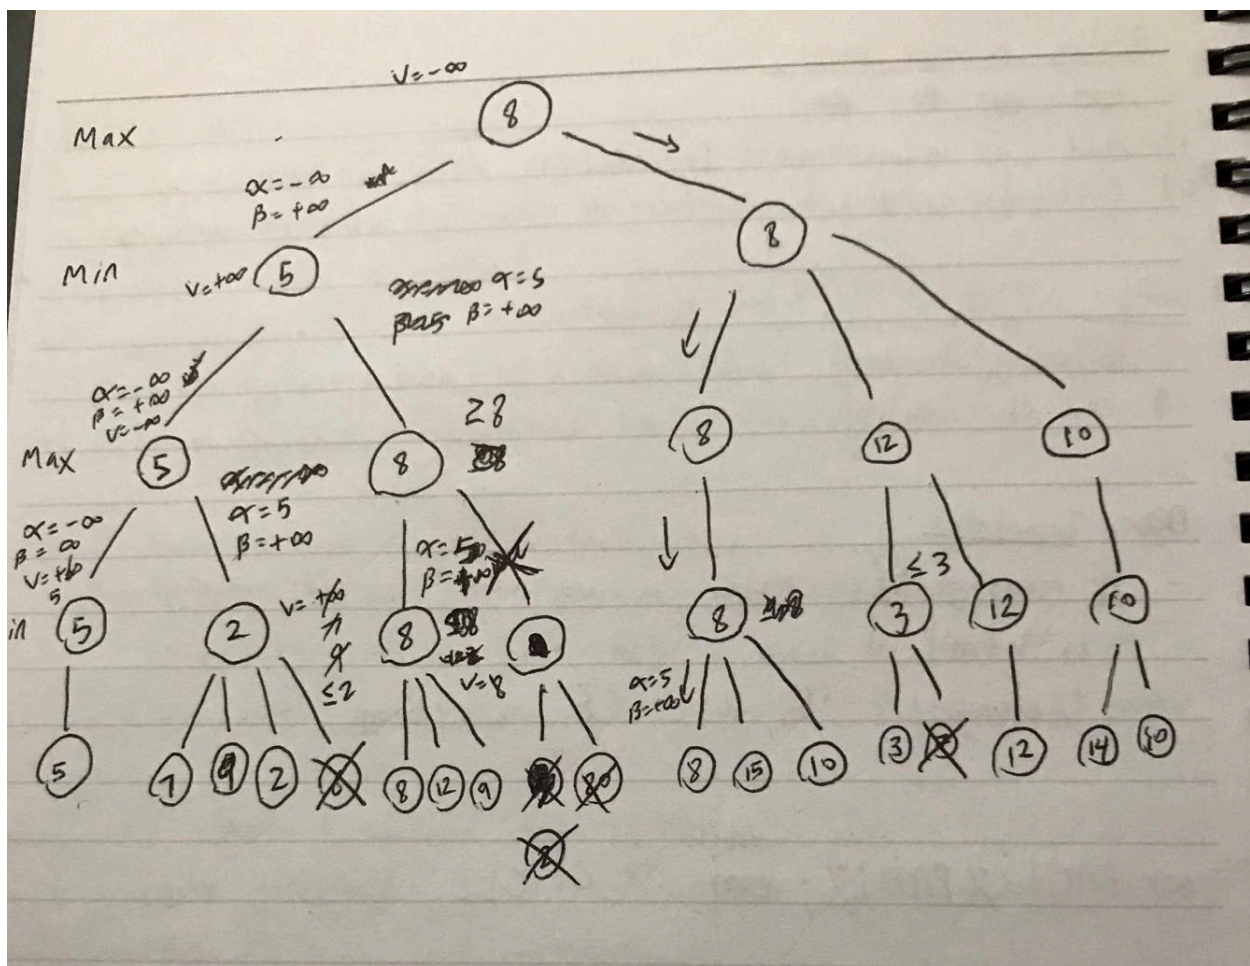 v=-∞
8
Max
α=-∞
β=+∞
8
Min
v=+∞
5
α=5
β=+∞
α=-∞
β=+∞
v=-∞
≥8
8
12
10
Max
5
8
α=5
β=+∞
α=-∞
β=∞
v=+∞
5
α=5
≤3
in
5
2
v=+∞
7
≤2
8
v=8
8
3
12
10
α=5
β=+∞
5
7
9
2
8
12
9
8
15
10
3
12
14
10